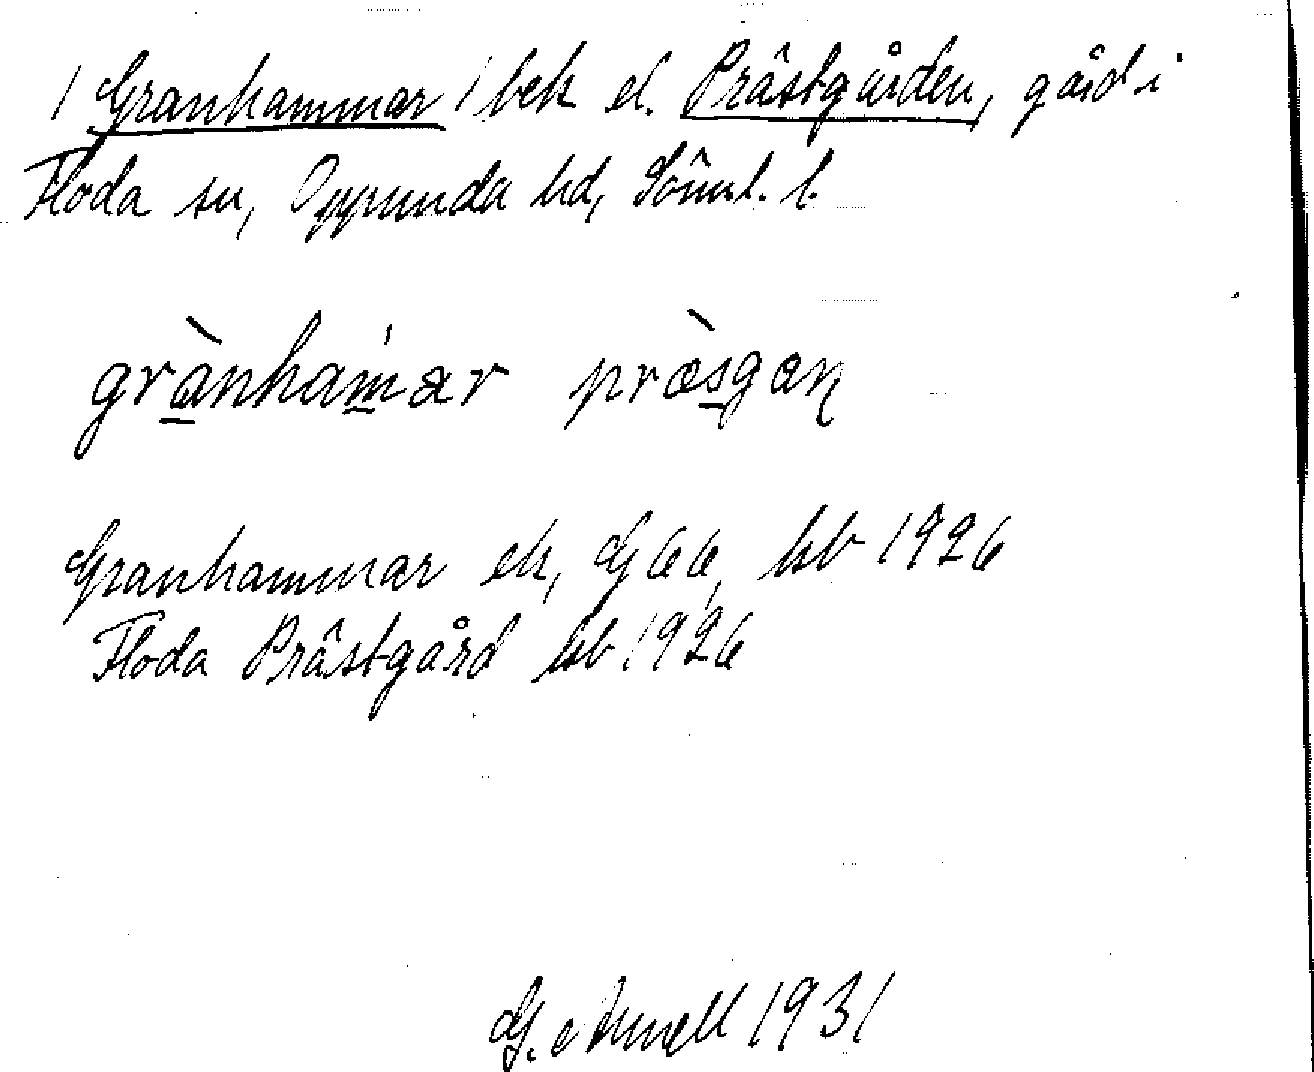 1 Granhammar 1 bek el. Prästgården, gård i
Floda sn, Oppunda hd, Söml. l.
grànham̍ar præ̀sgaɳ
Granhammar ek, GG 66, hsb 1926
Floda Prästgård hsb 1926
G. Arnell 1931